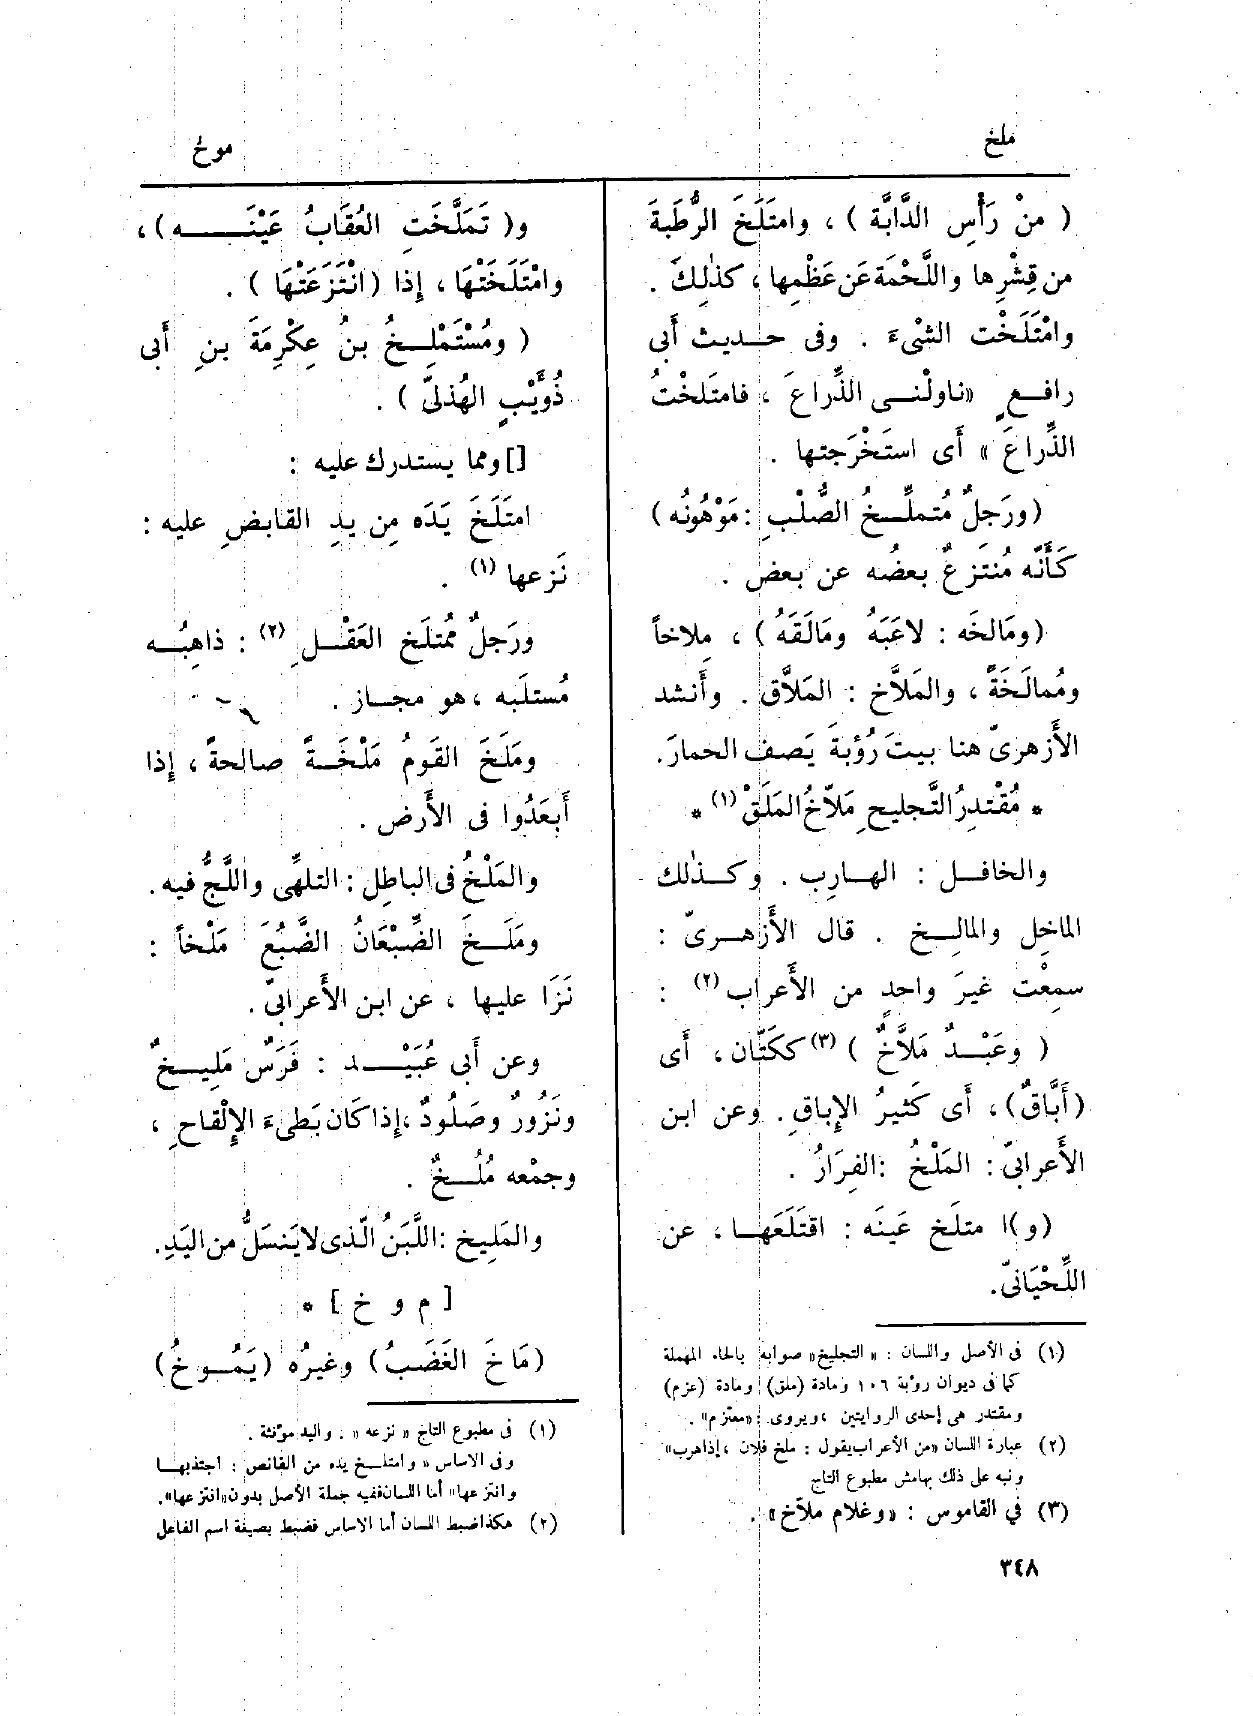 ملخ
موخ
( منْ رَأْسِ الدَّابَّة ) ، وامتَلَخَ الرُّطَبةَ
من قِشْرِها واللَّحْمَة عَن عَظْمِها ، كذٰلِكَ .
وامْتَلَخْت الشيْءَ . وفى حـديث أَبى
رافـعٍ «ناولْنـى الذِّراعَ ، فامتَلخْتُ
الذِّراعَ » أَى استَخْرَجتها .
(ورَجلٌ مُتملِّـخُ الصُّلْبِ : مَوْهُونُه )
كَأَنَّه مُنتَزعٌ بعضُه عن بعض .
(ومَالخَه : لاعَبَهُ ومَالَقَهُ ) ، مِلاخاً
ومُمالَخَةً ، والمَلاَّخ : المَلاَّق . وأَنشد
الأَزهرىّ هنا بيتَ رُؤبةَ يَصف الحمارَ.
* مُقْتدِرُ التَّجليحِ مَلاَّخُ المَلَقْ (١) *
والخافـل : الهـارِب . وكـذٰلك
الماخِل والمالِـخ . قال الأَزهـرىّ :
سمعْت غيرَ واحدٍ من الأَعراب (٢) :
( وعَبْـدٌ مَلاَّخٌ ) (٣) ككَتَّان ، أَى
(أَبَّاقٌ) ، أَى كَثيرُ الإِباقِ . وعن ابن
الأَعرابىّ : المَلْخُ : الفِرَارُ .
(و)ا متلَخ عَينَه : اقتَلَعَهـا ، عن
اللِّحْيَانىّ.
(١) فى الأصل واللسان : « التجليخ» صوابه بالحاء المهملة
كما فى ديوان رؤبة ١٠٦ ومادة (ملق) ومادة (عزم)
ومقتدر هى إحدى الروايتين ، ويروى : «معتزم» .
(٢) عبارة اللسان «من الأعراب يقول : ملخ فلان ، إذا هرب»
ونبه على ذلك بهامش مطبوع التاج
(٣) في القاموس : «وغلام ملاّخ» .
٣٤٨
و( تَمَلَّخَتِ العُقَابُ عَيْنَـــه ) ،
وامْتَلَخَتْهَا ، إِذا (انْتَزَعَتْهَا ) .
( ومُسْتَمْلِـخُ بنُ عِكْرِمَةَ بنِ أَبى
ذُوَيْبٍ الهُذلىّ ) .
[] ومما يستدرك عليه :
امتَلَخَ يَدَه مِن يدِ القابضِ عليه :
نَزعها (١) .
ورَجلٌ مُمتلَخ العَقْـل (٢) : ذاهبُـه
مُستلَبه ، هو مجـاز .
ومَلَخَ القَومُ مَلْخَـةً صالحةً ، إِذا
أَبعَدُوا فى الأَرض .
والمَلْخُ فى الباطِل : التلهِّى واللَّجُّ فيه .
ومَلَـخَ الضِّبْعَانُ الضَّبُعَ مَلْخاً :
نَزَا عليها ، عن ابن الأَعرابىّ .
وعن أَبى عُبَيْـد : فَرَسٌ مَلِيـخٌ
ونَزُورٌ وصَلُودٌ ، إِذا كَان بَطىءَ الإِلْقاحِ ،
وجمْعه مُلُـخٌ .
والمَلِيخ : اللَّبَنُ الّذى لا يَنسَلُّ من اليَدِ .
[ م و خ ] *
(مَاخَ الغَضَبُ) وغيرُه (يَمُـوخُ)
(١) فى مطبوع التاج « نزعه » . واليد مؤنثة .
وفى الاساس « وامتلـخ يده من القابض : اجتذبهـا
وانتزعها» أما اللسان ففيه جملة الأصل بدون «انتزعها».
(٢) هكذا ضبط اللسان أما الاساس فضبط بصيغة اسم الفاعل